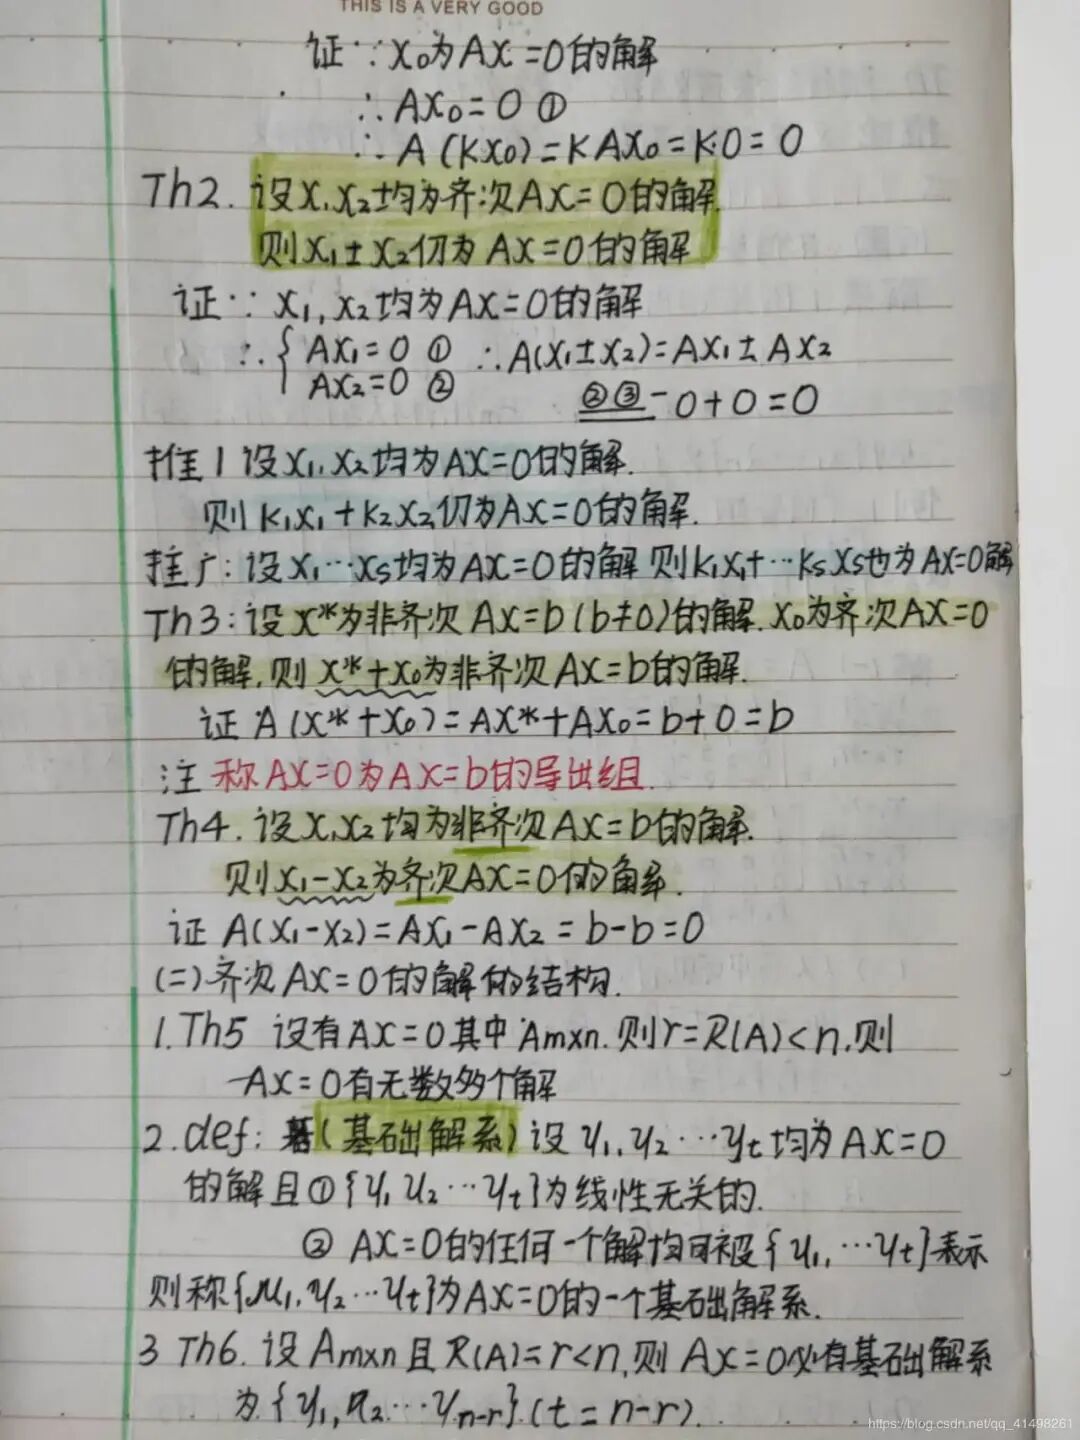 THIS IS A VERY GOOD
证 ∵ X₀为AX=0的解
∴AX₀=0 ①
∴A(KX₀)=KAX₀=K·0=0
Th2. 设X₁X₂均为齐次AX=0的解.
则X₁±X₂仍为AX=0的解
证∵ X₁,X₂均为AX=0的解
∴{ AX₁=0 ① ∴A(X₁±X₂)=AX₁±AX₂
AX₂=0 ② ②③ 0+0=0
推1 设X₁,X₂均为AX=0的解.
则K₁X₁+K₂X₂仍为AX=0的解.
推广:设X₁…Xs均为AX=0的解 则K₁X₁+…KsXs也为AX=0解
Th3:设X*为非齐次AX=b(b≠0)的解.X₀为齐次AX=0
的解,则X*+X₀为非齐次AX=b的解.
证 A(X*+X₀)=AX*+AX₀=b+0=b
注 称AX=0为AX=b的导出组.
Th4. 设X₁X₂均为非齐次AX=b的解.
则X₁-X₂为齐次AX=0的解.
证 A(X₁-X₂)=AX₁-AX₂=b-b=0
(二)齐次AX=0的解的结构.
1.Th5 设有AX=0其中Amxn.则r=R(A)<n,则
AX=0有无数多个解
2.def: (基础解系)设y₁,y₂…yt均为AX=0
的解且①{y₁ y₂…yt}为线性无关的.
② AX=0的任何一个解均可被{y₁,…yt}表示
则称{y₁,y₂…yt}为AX=0的一个基础解系.
3 Th6. 设Amxn且R(A)=r<n,则AX=0必有基础解系
为{y₁,y₂…yn-r}.(t=n-r).
https://blog.csdn.net/qq_41498261